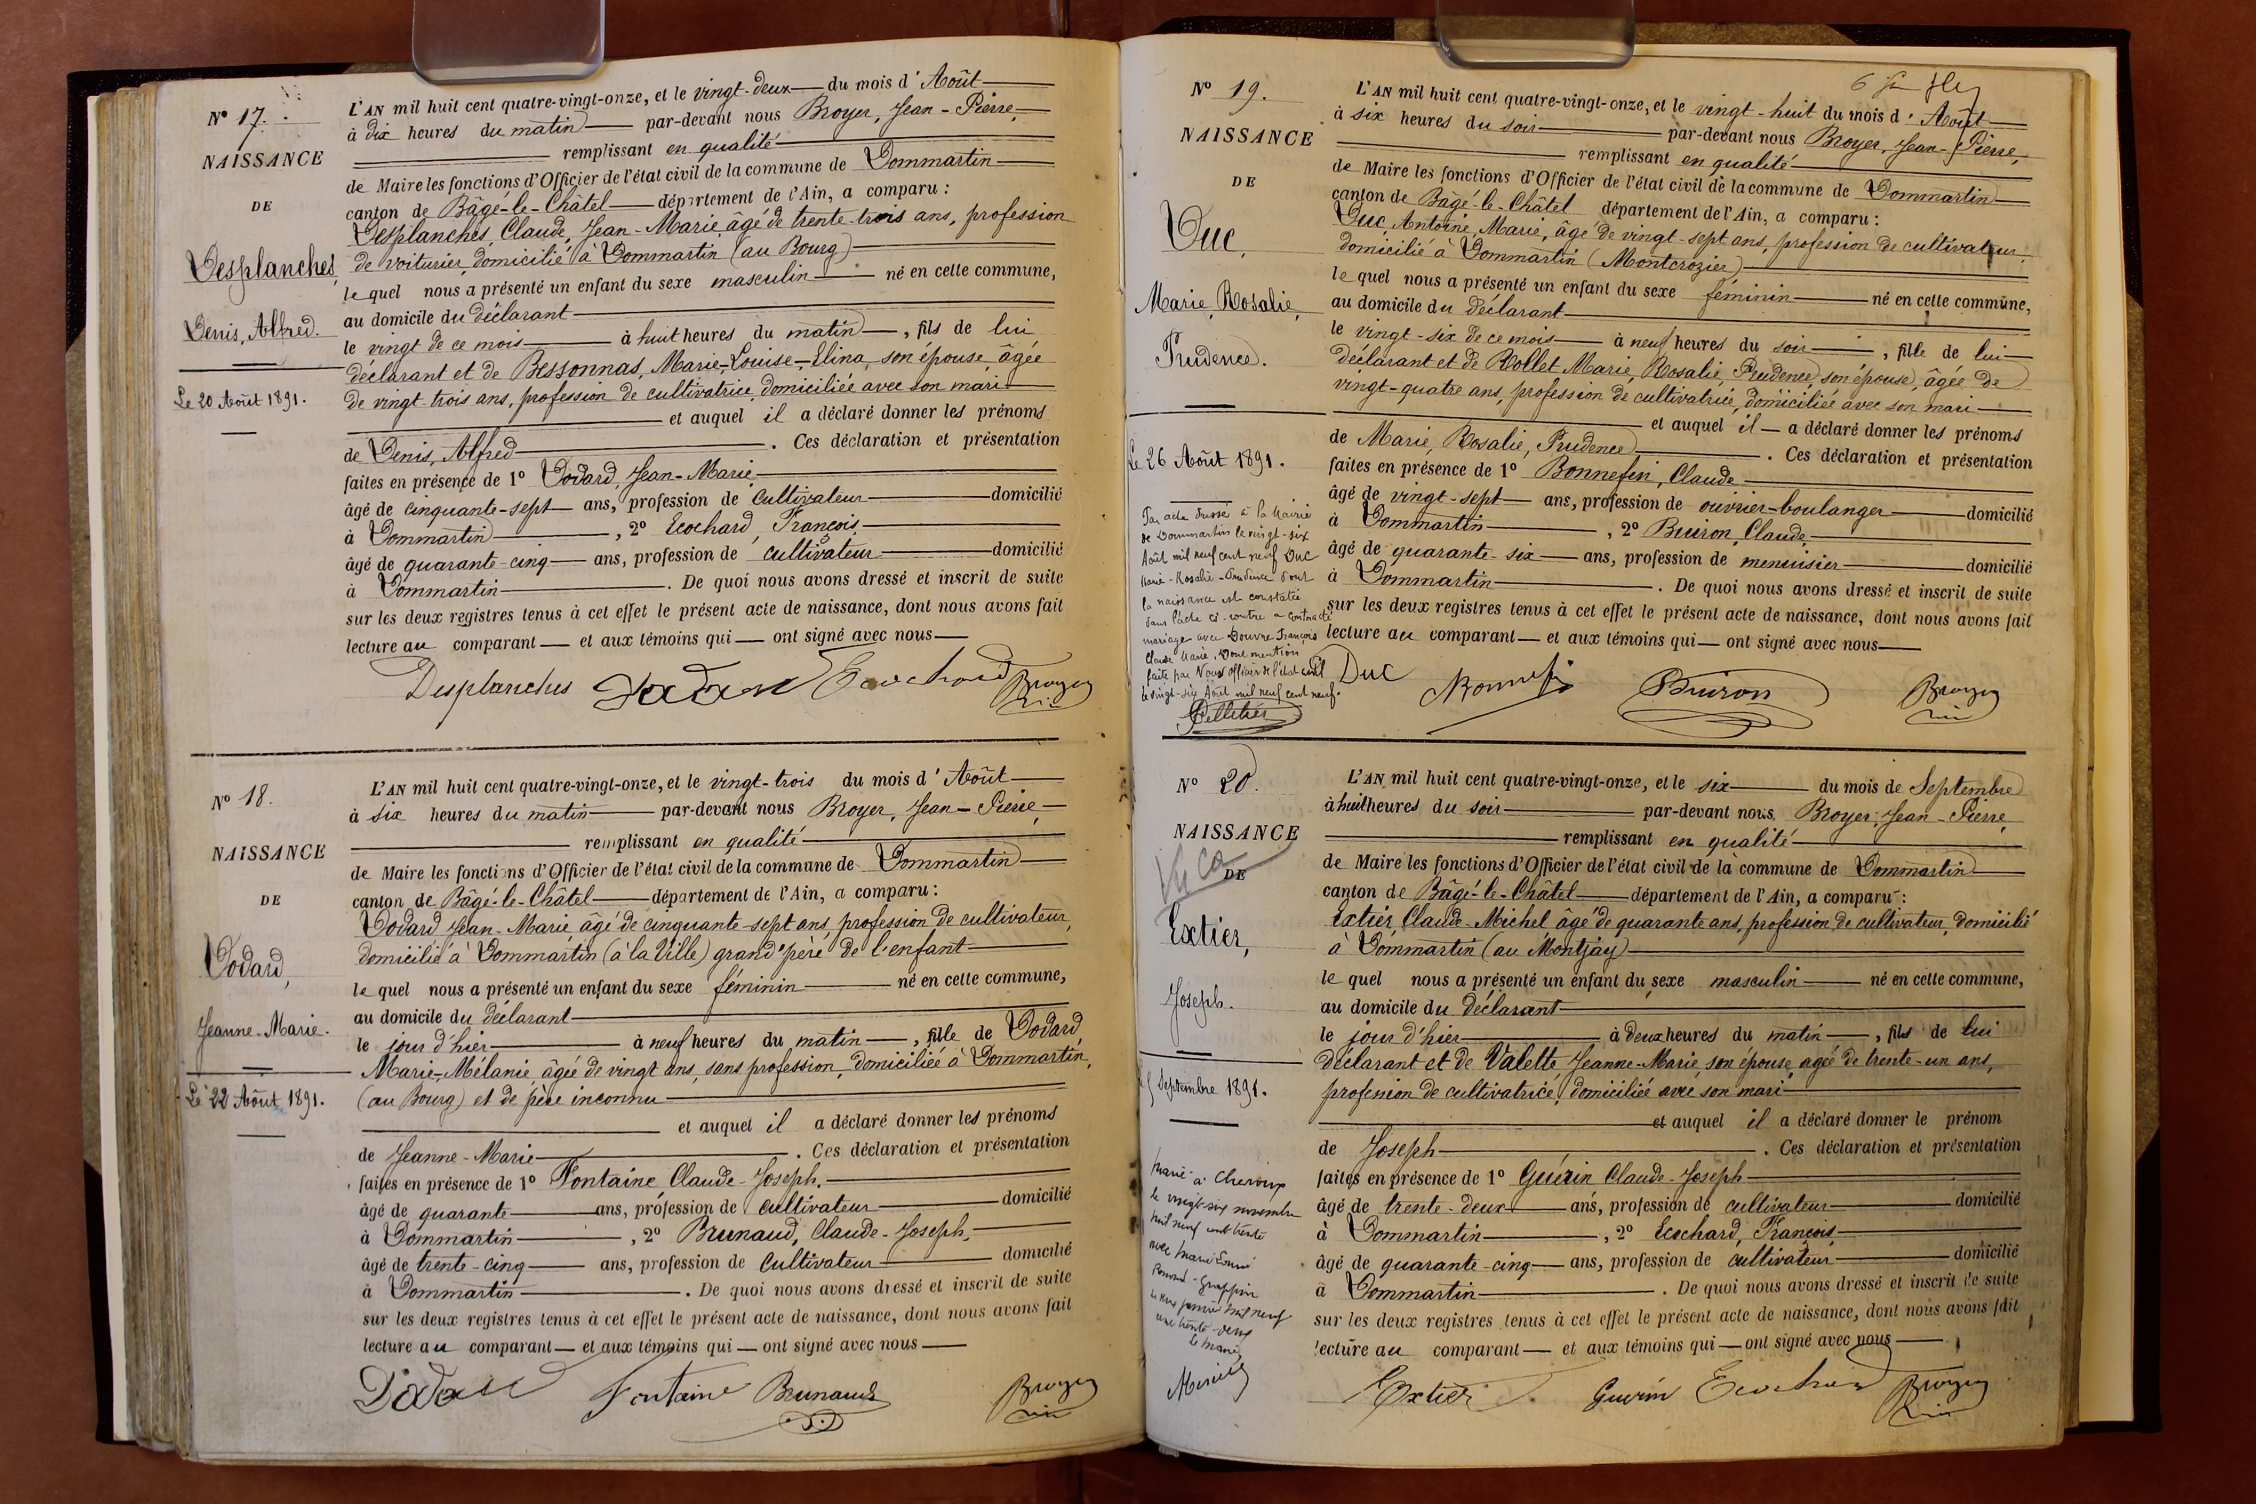 Nº 17.
NAISSANCE
DE
Desplanches,
Denis, Alfred.
Le 20 Août 1891.
L'AN mil huit cent quatre-vingt-onze, et le vingt-deux du mois d'Août
à dix heures du matin par-devant nous Broyer, Jean-Pierre,
remplissant en qualité
de Maire les fonctions d'Officier de l'état civil de la commune de Dommartin
canton de Bâgé-le-Châtel département de l'Ain, a comparu :
Desplanches, Claude, Jean-Marie âgé de trente-trois ans, profession
de voiturier, domicilié à Dommartin (au Bourg)
lequel nous a présenté un enfant du sexe masculin né en cette commune,
au domicile du déclarant
le vingt de ce mois à huit heures du matin, fils de lui
déclarant et de Bessonnas, Marie-Louise-Elina, son épouse, âgée
de vingt-trois ans, profession de cultivatrice, domiciliée avec son mari
et auquel il a déclaré donner les prénoms
de Denis, Alfred. Ces déclaration et présentation
faites en présence de 1º Dodard, Jean-Marie
âgé de cinquante-sept ans, profession de cultivateur domicilié
à Dommartin, 2º Ecochard, François
âgé de quarante-cinq ans, profession de cultivateur domicilié
à Dommartin. De quoi nous avons dressé et inscrit de suite
sur les deux registres tenus à cet effet le présent acte de naissance, dont nous avons fait
lecture au comparant et aux témoins qui ont signé avec nous
Desplanches Dodard Ecochard Broyer
Nº 18.
NAISSANCE
DE
Dodard,
Jeanne-Marie.
Le 22 Août 1891.
L'AN mil huit cent quatre-vingt-onze, et le vingt-trois du mois d'Août
à six heures du matin par-devant nous Broyer, Jean-Pierre,
remplissant en qualité
de Maire les fonctions d'Officier de l'état civil de la commune de Dommartin
canton de Bâgé-le-Châtel département de l'Ain, a comparu :
Dodard Jean-Marie âgé de cinquante-sept ans, profession de cultivateur,
domicilié à Dommartin (à la Ville) grand'père de l'enfant
lequel nous a présenté un enfant du sexe féminin né en cette commune,
au domicile du déclarant
le jour d'hier à neuf heures du matin, fille de Dodard
Marie-Mélanie âgée de vingt ans, sans profession, domiciliée à Dommartin,
(au Bourg) et de père inconnu
et auquel il a déclaré donner les prénoms
de Jeanne-Marie. Ces déclaration et présentation
faites en présence de 1º Fontaine Claude-Joseph.
âgé de quarante ans, profession de cultivateur domicilié
à Dommartin, 2º Brunaud, Claude-Joseph,
âgé de trente-cinq ans, profession de Cultivateur domicilié
à Dommartin. De quoi nous avons dressé et inscrit de suite
sur les deux registres tenus à cet effet le présent acte de naissance, dont nous avons fait
lecture au comparant et aux témoins qui ont signé avec nous
Dodard Fontaine Brunaud Broyer
Nº 19.
NAISSANCE
DE
Duc,
Marie, Rosalie,
Prudence.
Le 26 Août 1891.
Par acte dressé à la Mairie
de Dommartin le vingt-six
Août mil neuf cent neuf Duc
Marie-Rosalie-Prudence dont
la naissance est constatée
dans l'acte ci-contre a contracté
mariage avec Douvre François
Claude Marie. Dont mention
faite par Nous officier de l'état civil
le vingt-six Août mil neuf cent neuf.
Pelletier
L'AN mil huit cent quatre-vingt-onze, et le vingt-huit du mois d'Août
à six heures du soir par-devant nous Broyer, Jean-Pierre,
remplissant en qualité
de Maire les fonctions d'Officier de l'état civil de la commune de Dommartin
canton de Bâgé-le-Châtel département de l'Ain, a comparu :
Duc, Antoine, Marie, âgé de vingt-sept ans, profession de cultivateur,
domicilié à Dommartin (Montcrozier)
lequel nous a présenté un enfant du sexe féminin né en cette commune,
au domicile du déclarant
le vingt-six de ce mois à neuf heures du soir, fille de lui
déclarant et de Rollet Marie, Rosalie Prudence, son épouse, âgée de
vingt-quatre ans, profession de cultivatrice, domiciliée avec son mari
et auquel il a déclaré donner les prénoms
de Marie, Rosalie, Prudence. Ces déclaration et présentation
faites en présence de 1º Bonnefin, Claude
âgé de vingt-sept ans, profession de ouvrier-boulanger domicilié
à Dommartin, 2º Buiron, Claude,
âgé de quarante-six ans, profession de menuisier domicilié
à Dommartin. De quoi nous avons dressé et inscrit de suite
sur les deux registres tenus à cet effet le présent acte de naissance, dont nous avons fait
lecture au comparant et aux témoins qui ont signé avec nous
Duc Bonnefin Buiron Broyer
Nº 20.
NAISSANCE
DE
Extier,
Joseph.
Le 5 Septembre 1891.
Marié à Chevroux
le vingt-six novembre
mil neuf cent trente
avec Marie Louise
le deux janvier mil neuf
cent trente-deux
Le maire,
L'AN mil huit cent quatre-vingt-onze, et le six du mois de Septembre
à huit heures du soir par-devant nous Broyer, Jean-Pierre,
remplissant en qualité
de Maire les fonctions d'Officier de l'état civil de la commune de Dommartin
canton de Bâgé-le-Châtel département de l'Ain, a comparu :
Extier, Claude-Michel âgé de quarante ans, profession de cultivateur, domicilié
à Dommartin (au Montjay)
lequel nous a présenté un enfant du sexe masculin né en cette commune,
au domicile du déclarant
le jour d'hier à deux heures du matin, fils de lui
déclarant et de Valette Jeanne-Marie, son épouse, âgée de trente-un ans,
profession de cultivatrice, domiciliée avec son mari
et auquel il a déclaré donner le prénom
de Joseph. Ces déclaration et présentation
faites en présence de 1º Guérin Claude-Joseph
âgé de trente-deux ans, profession de cultivateur domicilié
à Dommartin, 2º Ecochard, François
âgé de quarante-cinq ans, profession de cultivateur domicilié
à Dommartin. De quoi nous avons dressé et inscrit de suite
sur les deux registres tenus à cet effet le présent acte de naissance, dont nous avons fait
lecture au comparant et aux témoins qui ont signé avec nous
Extier Guérin Ecochard Broyer